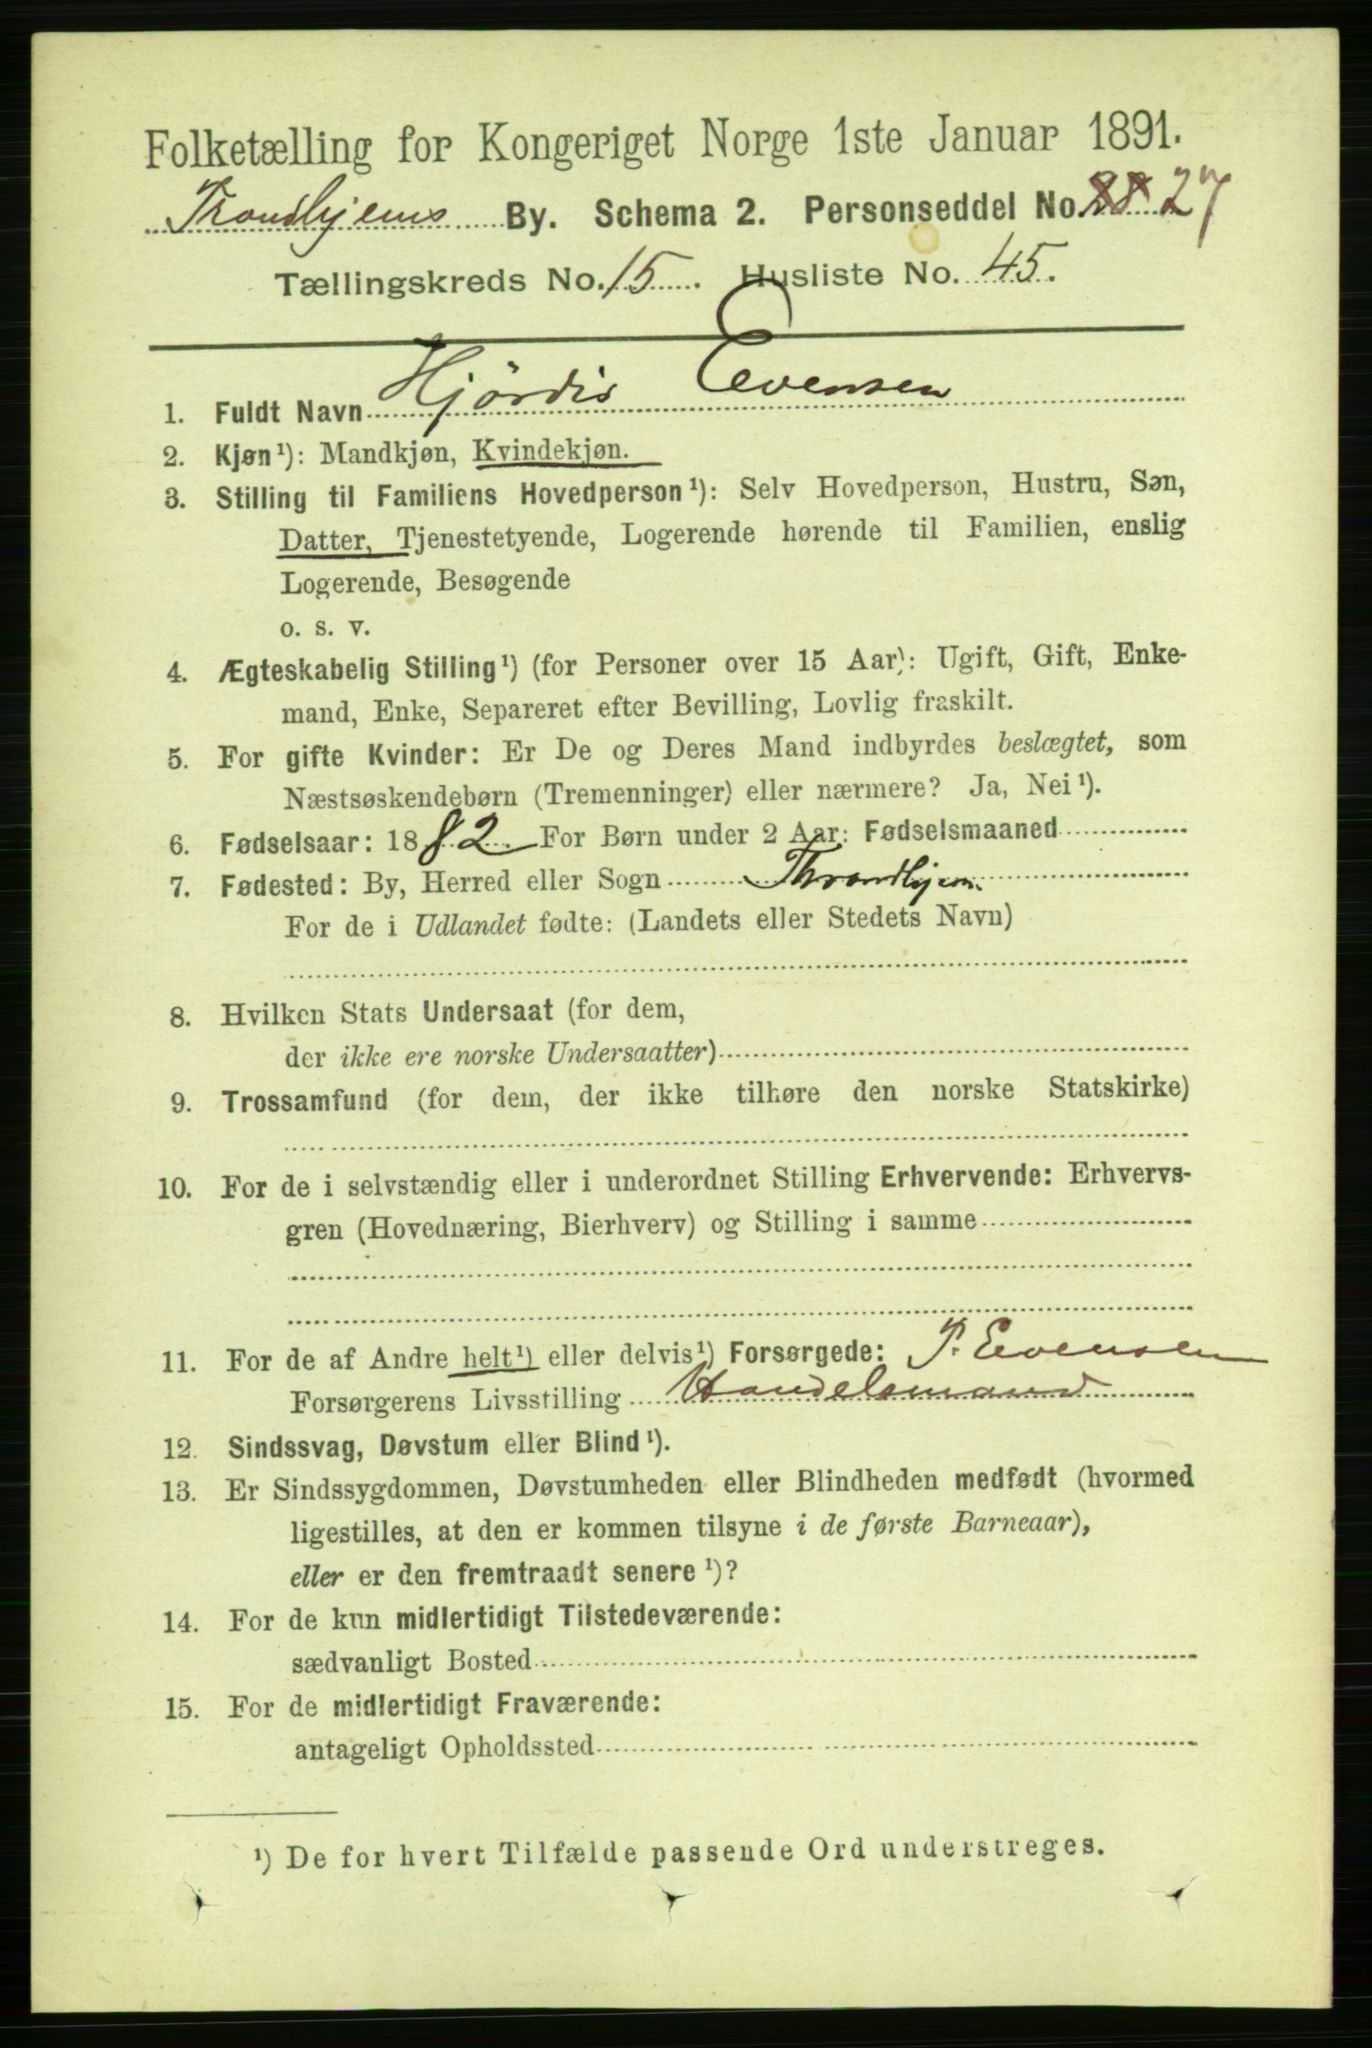 Folketælling for Kongeriget Norge 1ste Januar 1891.
Trondhjems By. Schema 2. Personseddel No. 27
Tællingskreds No. 15. Husliste No. 45.
1. Fuldt Navn Hjördis Evensen
2. Kjøn¹): Mandkjøn, Kvindekjøn.
3. Stilling til Familiens Hovedperson¹): Selv Hovedperson, Hustru, Søn,
Datter, Tjenestetyende, Logerende hørende til Familien, enslig
Logerende, Besøgende
o. s. v.
4. Ægteskabelig Stilling¹) (for Personer over 15 Aar): Ugift, Gift, Enke-
mand, Enke, Separeret efter Bevilling, Lovlig fraskilt.
5. For gifte Kvinder: Er De og Deres Mand indbyrdes beslægtet, som
Næstsøskendebørn (Tremenninger) eller nærmere? Ja, Nei¹).
6. Fødselsaar: 1882. For Børn under 2 Aar: Fødselsmaaned
7. Fødested: By, Herred eller Sogn Throndhjem.
For de i Udlandet fødte: (Landets eller Stedets Navn)
8. Hvilken Stats Undersaat (for dem,
der ikke ere norske Undersaatter)
9. Trossamfund (for dem, der ikke tilhøre den norske Statskirke)
10. For de i selvstændig eller i underordnet Stilling Erhvervende: Erhvervs-
gren (Hovednæring, Bierhverv) og Stilling i samme
11. For de af Andre helt¹) eller delvis¹) Forsørgede: P. Evensen
Forsørgerens Livsstilling Handelsmand
12. Sindssvag, Døvstum eller Blind¹).
13. Er Sindssygdommen, Døvstumheden eller Blindheden medfødt (hvormed
ligestilles, at den er kommen tilsyne i de første Barneaar),
eller er den fremtraadt senere¹)?
14. For de kun midlertidigt Tilstedeværende:
sædvanligt Bosted
15. For de midlertidigt Fraværende:
antageligt Opholdssted
¹) De for hvert Tilfælde passende Ord understreges.